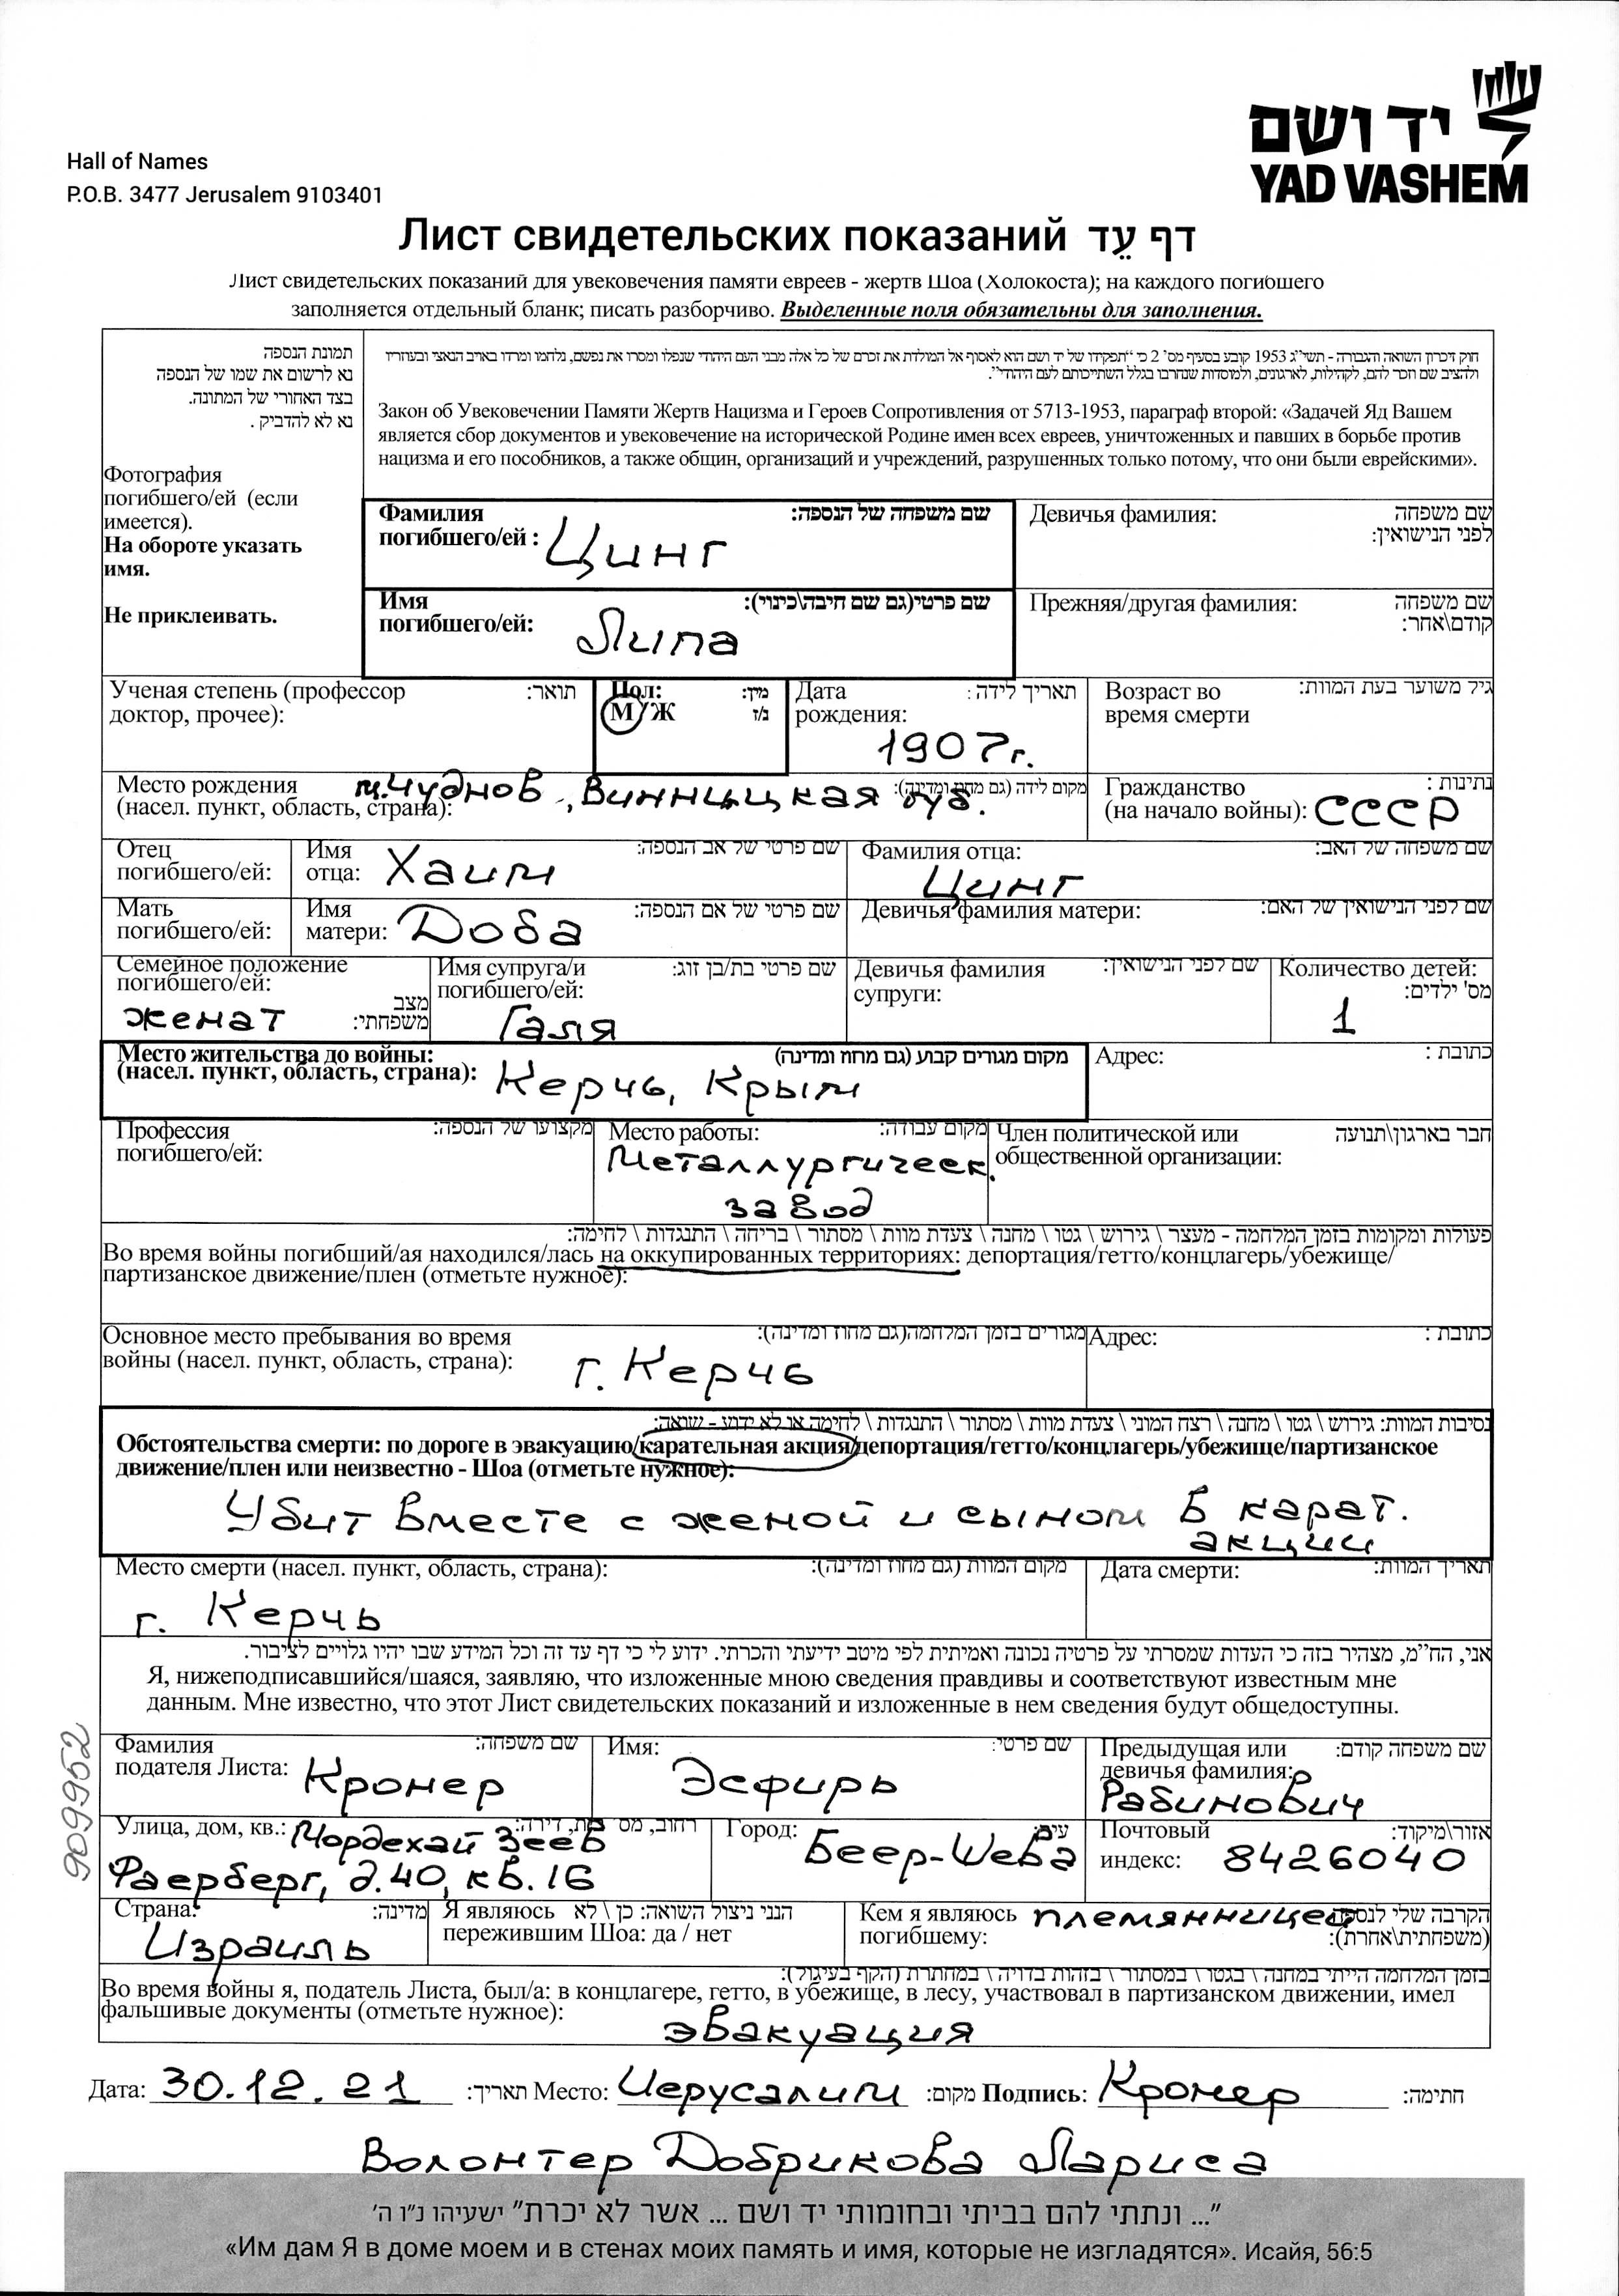 יד ושם
YAD VASHEM
Hall of Names
P.O.B. 3477 Jerusalem 9103401
Лист свидетельских показаний דף עֵד
Лист свидетельских показаний для увековечения памяти евреев - жертв Шоа (Холокоста); на каждого погибшего
заполняется отдельный бланк; писать разборчиво. Выделенные поля обязательны для заполнения.
תמונת הנספה
נא לרשום את שמו של הנספה
בצד האחורי של המתונה.
נא לא להדביק .
Фотография
погибшего/ей (если
имеется).
На обороте указать
имя.
Не приклеивать.
חוק זיכרון השואה והגבורה - תשי״ג 1953 קובע בסעיף מס' 2 כי "תפקידו של יד ושם הוא לאסוף אל המולדת את זכרם של כל אלה מבני העם היהודי שנפלו ומסרו את נפשם, נלחמו ומרדו באויב הנאצי ובעוזריו
ולהציב שם וזכר להם, לקהילות, לארגונים, ולמוסדות שנחרבו בגלל השתייכותם לעם היהודי".
Закон об Увековечении Памяти Жертв Нацизма и Героев Сопротивления от 5713-1953, параграф второй: «Задачей Яд Вашем
является сбор документов и увековечение на исторической Родине имен всех евреев, уничтоженных и павших в борьбе против
нацизма и его пособников, а также общин, организаций и учреждений, разрушенных только потому, что они были еврейскими».
Фамилия שם משפחה של הנספה:
погибшего/ей : Цинг
Девичья фамилия: שם משפחה
לפני הנישואין:
Имя שם פרטי(גם שם חיבה\כינוי):
погибшего/ей: Липа
Прежняя/другая фамилия: שם משפחה
קודם\אחר:
Ученая степень (профессор תואר:
доктор, прочее):
Пол: מין:
М/Ж ז/נ
Дата תאריך לידה :
рождения:
1907г.
Возраст во גיל משוער בעת המוות:
время смерти
Место рождения м.Чуднов, Винницкая губ. מקום לידה (גם מחוז ומדינה):
(насел. пункт, область, страна):
Гражданство נתינות :
(на начало войны): СССР
Отец
погибшего/ей:
Имя שם פרטי של אב הנספה:
отца: Хаим
Фамилия отца: שם משפחה של האב:
Цинг
Мать
погибшего/ей:
Имя שם פרטי של אם הנספה:
матери: Доба
Девичья фамилия матери: שם לפני הנישואין של האם:
Семейное положение
погибшего/ей: מצב
женат משפחתי:
Имя супруга/и שם פרטי בת/בן זוג:
погибшего/ей:
Галя
Девичья фамилия שם לפני הנישואין:
супруги:
Количество детей:
מס' ילדים:
1
Место жительства до войны: מקום מגורים קבוע (גם מחוז ומדינה)
(насел. пункт, область, страна): Керчь, Крым
Адрес: כתובת :
Профессия מקצועו של הנספה:
погибшего/ей:
Место работы: מקום עבודה:
Металлургическ.
завод
Член политической или חבר בארגון\תנועה
общественной организации:
פעולות ומקומות בזמן המלחמה - מעצר \ גירוש \ גטו \ מחנה \ צעדת מוות \ מסתור \ בריחה \ התנגדות \ לחימה:
Во время войны погибший/ая находился/лась на оккупированных территориях: депортация/гетто/концлагерь/убежище/
партизанское движение/плен (отметьте нужное):
Основное место пребывания во время מגורים בזמן המלחמה(גם מחוז ומדינה):
войны (насел. пункт, область, страна): г. Керчь
Адрес: כתובת :
נסיבות המוות: גירוש \ גטו \ מחנה \ רצח המוני \ צעדת מוות \ מסתור \ התנגדות \ לחימה או לא ידוע - שואה:
Обстоятельства смерти: по дороге в эвакуацию/карательная акция/депортация/гетто/концлагерь/убежище/партизанское
движение/плен или неизвестно - Шоа (отметьте нужное):
Убит вместе с женой и сыном в карат.
акции
Место смерти (насел. пункт, область, страна): מקום המוות (גם מחוז ומדינה):
г. Керчь
Дата смерти: תאריך המוות:
אני, הח״מ, מצהיר בזה כי העדות שמסרתי על פרטיה נכונה ואמיתית לפי מיטב ידיעתי והכרתי. ידוע לי כי דף עד זה וכל המידע שבו יהיו גלויים לציבור.
Я, нижеподписавшийся/шаяся, заявляю, что изложенные мною сведения правдивы и соответствуют известным мне
данным. Мне известно, что этот Лист свидетельских показаний и изложенные в нем сведения будут общедоступны.
909952
Фамилия שם משפחה:
подателя Листа: Кронер
Имя: שם פרטי:
Эсфирь
Предыдущая или שם משפחה קודם:
девичья фамилия:
Рабинович
Улица, дом, кв.: Мордехай Зеев רחוב, מס דירה:
Фаерберг, д.40, кв.16
Город: עיר:
Беер-Шева
Почтовый אזור\מיקוד:
индекс: 8426040
Страна: מדינה:
Израиль
Я являюсь הנני ניצול השואה: כן \ לא
пережившим Шоа: да / нет
Кем я являюсь племянницей הקרבה שלי לנספה
погибшему: (משפחתית\אחרת):
בזמן המלחמה הייתי במחנה \ בגטו \ במסתור \ בזהות בדויה \ במחתרת (הקף בעיגול):
Во время войны я, податель Листа, был/а: в концлагере, гетто, в убежище, в лесу, участвовал в партизанском движении, имел
фальшивые документы (отметьте нужное): эвакуация
Дата: 30.12.21 תאריך: Место: Иерусалим מקום: Подпись: Кронер חתימה:
Волонтер Добрикова Лариса
"... ונתתי להם בביתי ובחומותי יד ושם ... אשר לא יכרת" ישעיהו נ״ו ה'
«Им дам Я в доме моем и в стенах моих память и имя, которые не изгладятся». Исайя, 56:5